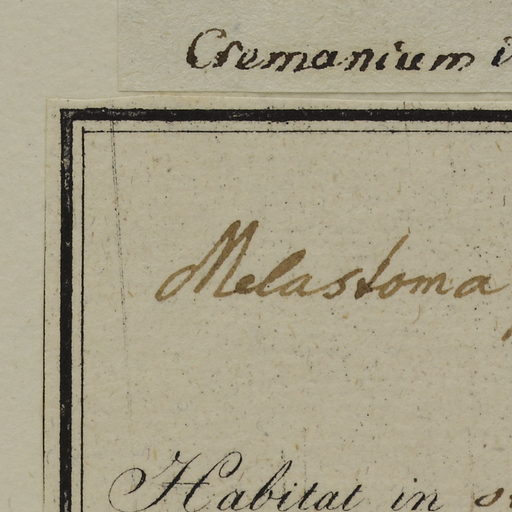 Cremanium
Melastoma
Habitat in